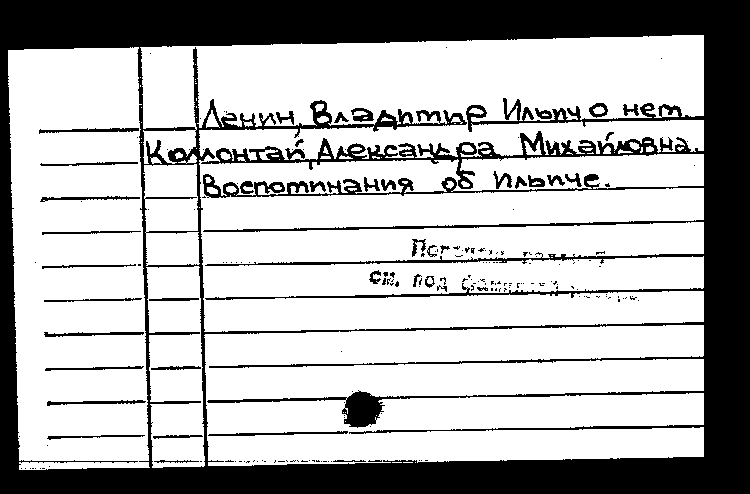 Ленин, Владимир Ильич, о нем.
Коллонтай, Александра Михайловна.
Воспоминания об Ильиче.
см. под фамилией